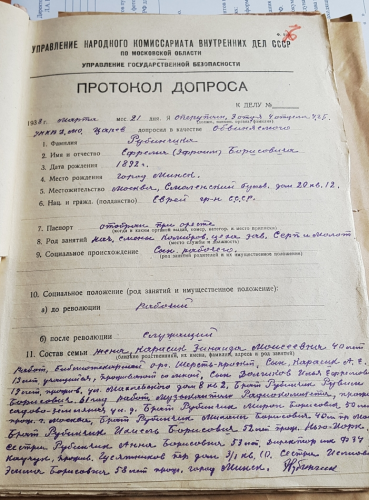 УПРАВЛЕНИЕ НАРОДНОГО КОМИССАРИАТА ВНУТРЕННИХ ДЕЛ СССР
ПО МОСКОВСКОЙ ОБЛАСТИ
УПРАВЛЕНИЕ ГОСУДАРСТВЕННОЙ БЕЗОПАСНОСТИ
ПРОТОКОЛ ДОПРОСА
К ДЕЛУ №
1938 г. марта мес. 21 дня. Я оперуполн. 4 отдела УГБ
Царев допросил в качестве Обвиняемого
1. Фамилия Рубинчик
2. Имя и отчество Ефремия (Эфроим) Борисовича
3. Дата рождения 1892 г.
4. Место рождения город Минск.
5. Местожительство Москва, Смоленский бульв. дом 20 кв. 12.
6. Нац. и гражд. (подданство) Еврей гр-н СССР.
7. Паспорт отобран при аресте
(когда и каким органом выдан, номер, категор. и место прописки)
8. Род занятий нач. смены цеха зав. Серп и Молот
(место службы и должность)
9. Социальное происхождение Сын рабочего
(род занятий родителей и их имущественное положение)
10. Социальное положение (род занятий и имущественное положение):
а) до революции рабочий
б) после революции Служащий
11. Состав семьи жена, Карасик Зинаида Моисеевна 40 лет
(близкие родственники, их имена, фамилии, адреса и род занятий)
работ. Библиотекаршей орг. Шерсть-проект, Сын Карасик А. Е.
13 лет учащийся, проживает со мной, Сын Ефремович
18 лет прожив. ул. дом 8 кв 2, Брат Рубинчик Рувим
Борисович работ. Радиокомитета, прожив.
Садово- ул. д. Брат Рубинчик Мирон Борисович 50 лет
прож. г. Москва, Брат Рубинчик Михаил Борисович 40 лет пр. Мос
Брат Рубинчик Борисович 52 лет прож. Нью-Йорк.
Сестра Рубинчик Анна Борисовна 53 лет, директор ФЗУ
прожив. Гусятников пер дом 3/1 кв. 10. Сестра
Борисовна 58 лет прож. город Минск.